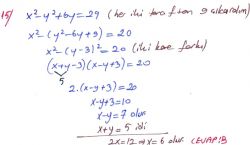 15) x²-y²+6y=29 (her iki taraftan 9 çıkaralım)
x²-(y²-6y+9)=20
x²-(y-3)²=20 (iki kare farkı)
(x+y-3)(x-y+3)=20
5
2.(x-y+3)=20
x-y+3=10
x-y=7 olur
x+y=5 idi
2x=12 ⇒ x=6 olur (CEVAP B)